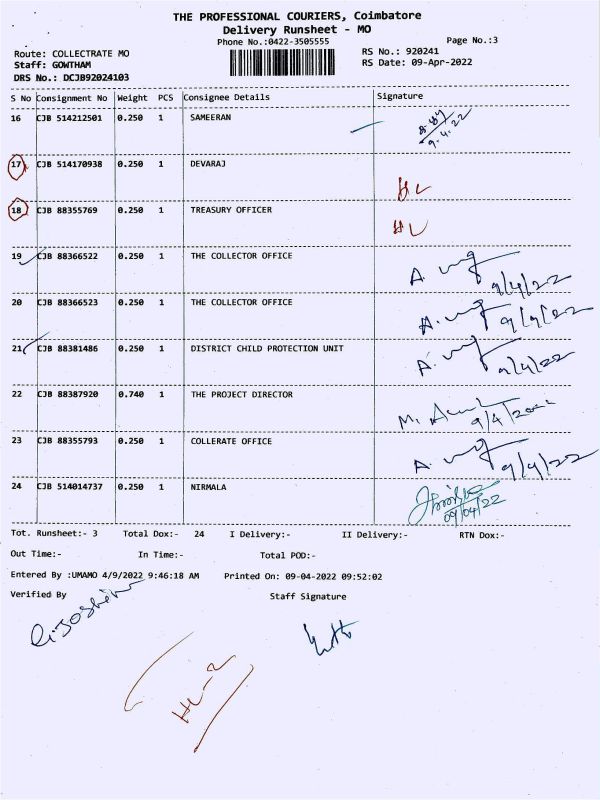 THE PROFESSIONAL COURIERS, Coimbatore
Delivery Runsheet - MO
Phone No.:0422-3505555 Page No.:3
Route: COLLECTRATE MO RS No.: 920241
Staff: GOWTHAM RS Date: 09-Apr-2022
DRS No.: DCJB92024103
S No Consignment No Weight PCS Consignee Details Signature
16 CJB 514212501 0.250 1 SAMEERAN
9.4.22
17 CJB 514170938 0.250 1 DEVARAJ
HL
18 CJB 88355769 0.250 1 TREASURY OFFICER
HL
19 CJB 88366522 0.250 1 THE COLLECTOR OFFICE A. 9/4/22
20 CJB 88366523 0.250 1 THE COLLECTOR OFFICE A. 9/4/22
21 CJB 88381486 0.250 1 DISTRICT CHILD PROTECTION UNIT A. 9/4/22
22 CJB 88387920 0.740 1 THE PROJECT DIRECTOR M. 9/4/2022
23 CJB 88355793 0.250 1 COLLERATE OFFICE A. 9/4/22
24 CJB 514014737 0.250 1 NIRMALA
09/04/22
Tot. Runsheet:- 3 Total Dox:- 24 I Delivery:- II Delivery:- RTN Dox:-
Out Time:- In Time:- Total POD:-
Entered By :UMAMO 4/9/2022 9:46:18 AM Printed On: 09-04-2022 09:52:02
Verified By Staff Signature
HL-2